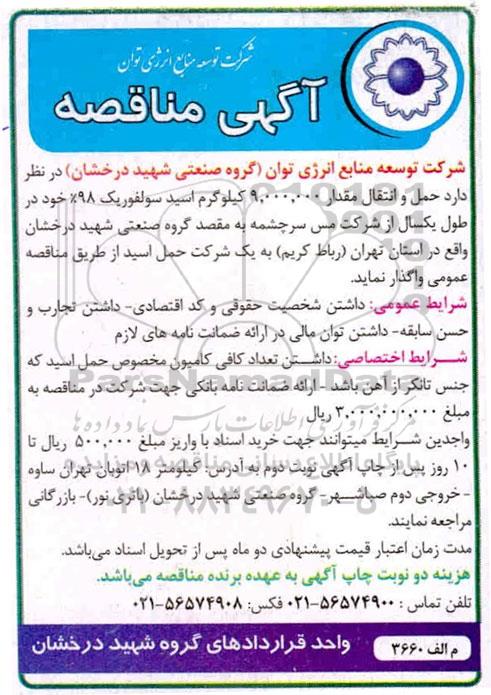 شرکت توسعه منابع انرژی توان
آگهی مناقصه
شرکت توسعه منابع انرژی توان (گروه صنعتی شهید درخشان) در نظر
دارد حمل و انتقال مقدار ۹,۰۰۰,۰۰۰ کیلوگرم اسید سولفوریک ۹۸٪ خود در
طول یکسال از شرکت مس سرچشمه به مقصد گروه صنعتی شهید درخشان
واقع در استان تهران (رباط کریم) به یک شرکت حمل اسید از طریق مناقصه
عمومی واگذار نماید.
شرایط عمومی: داشتن شخصیت حقوقی و کد اقتصادی- داشتن تجارب و
حسن سابقه- داشتن توان مالی در ارائه ضمانت نامه های لازم
شرایط اختصاصی: داشتن تعداد کافی کامیون مخصوص حمل اسید که
جنس تانکر از آهن باشد - ارائه ضمانت نامه بانکی جهت شرکت در مناقصه به
مبلغ ۳,۰۰۰,۰۰۰,۰۰۰ ریال
واجدین شرایط میتوانند جهت خرید اسناد با واریز مبلغ ۵۰۰,۰۰۰ ریال تا
۱۰ روز پس از چاپ آگهی نوبت دوم به آدرس: کیلومتر ۱۸ اتوبان تهران ساوه
- خروجی دوم صباشهر- گروه صنعتی شهید درخشان (باتری نور)- بازرگانی
مراجعه نمایند.
مدت زمان اعتبار قیمت پیشنهادی دو ماه پس از تحویل اسناد می‌باشد.
هزینه دو نوبت چاپ آگهی به عهده برنده مناقصه می‌باشد.
تلفن تماس : ۵۶۵۷۴۹۰۰-۰۲۱ فکس: ۵۶۵۷۴۹۰۸-۰۲۱
م الف ۳۶۶۰ واحد قراردادهای گروه شهید درخشان
ParsNamadData
مرکز فرآوری اطلاعات پارس نماد داده ها
پایگاه اطلاع رسانی مناقصه و مزایده
۰۲۱-۸۸۳۴۹۶۷۰-۵